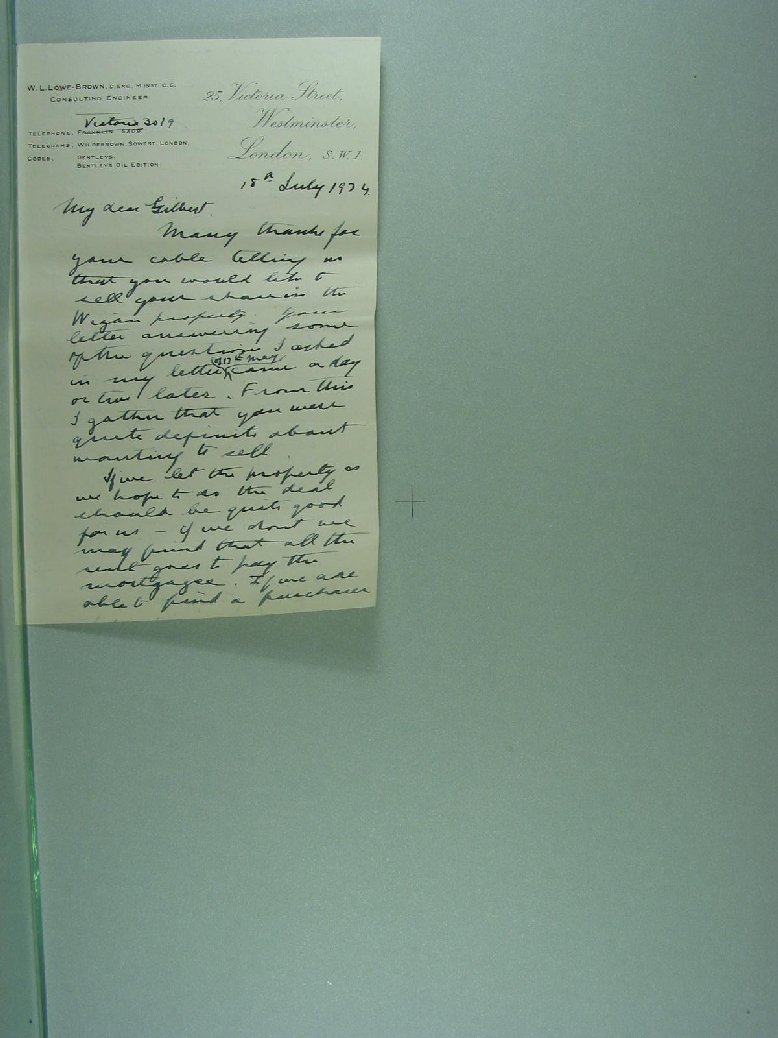 W. L. LOWE-BROWN, D.ENG., M.INST. C.E.
CONSULTING ENGINEER
25, Victoria Street,
Westminster,
London, S.W.1.
Victoria 2019
TELEPHONE, FRANKLIN
TELEGRAMS, WILOEBROWN, SOWEST, LONDON.
CODES, BENTLEYS.
BENTLEYS OIL EDITION
18th July 1934
My dear Gilbert.
Many thanks for
your cable telling us
that you would like to
sell your share in the
Wigan property. Your
letter answering some
of the questions I asked
in my letter of 17th May came a day
or two later. From this
I gather that you were
quite definite about
wanting to sell.
If we let the property as
we hope to do the deal
should be quite good
for us - if we dont we
may find that all the
rent goes to pay the
mortgagee. If we are
able to find a purchaser